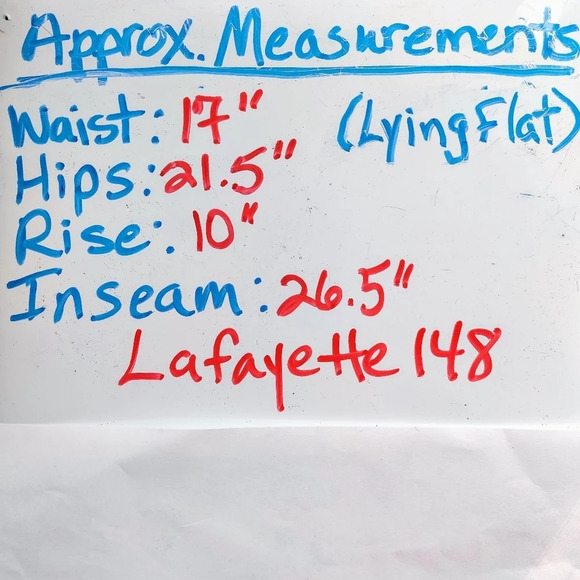 Approx. Measurements
Waist: 17" (Lying Flat)
Hips: 21.5"
Rise: 10"
Inseam: 26.5"
Lafayette 148